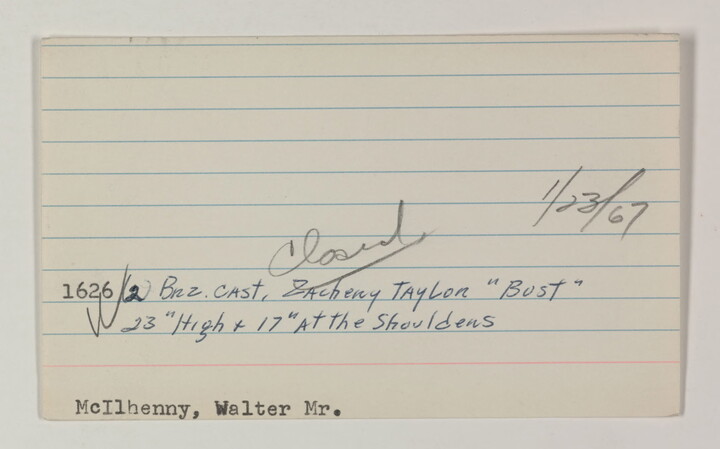 1/23/67
Closed
1626 (2) Brz. Cast, Zacheny Taylor "Bust"
23 "High + 17" At the Shoulders
McIlhenny, Walter Mr.